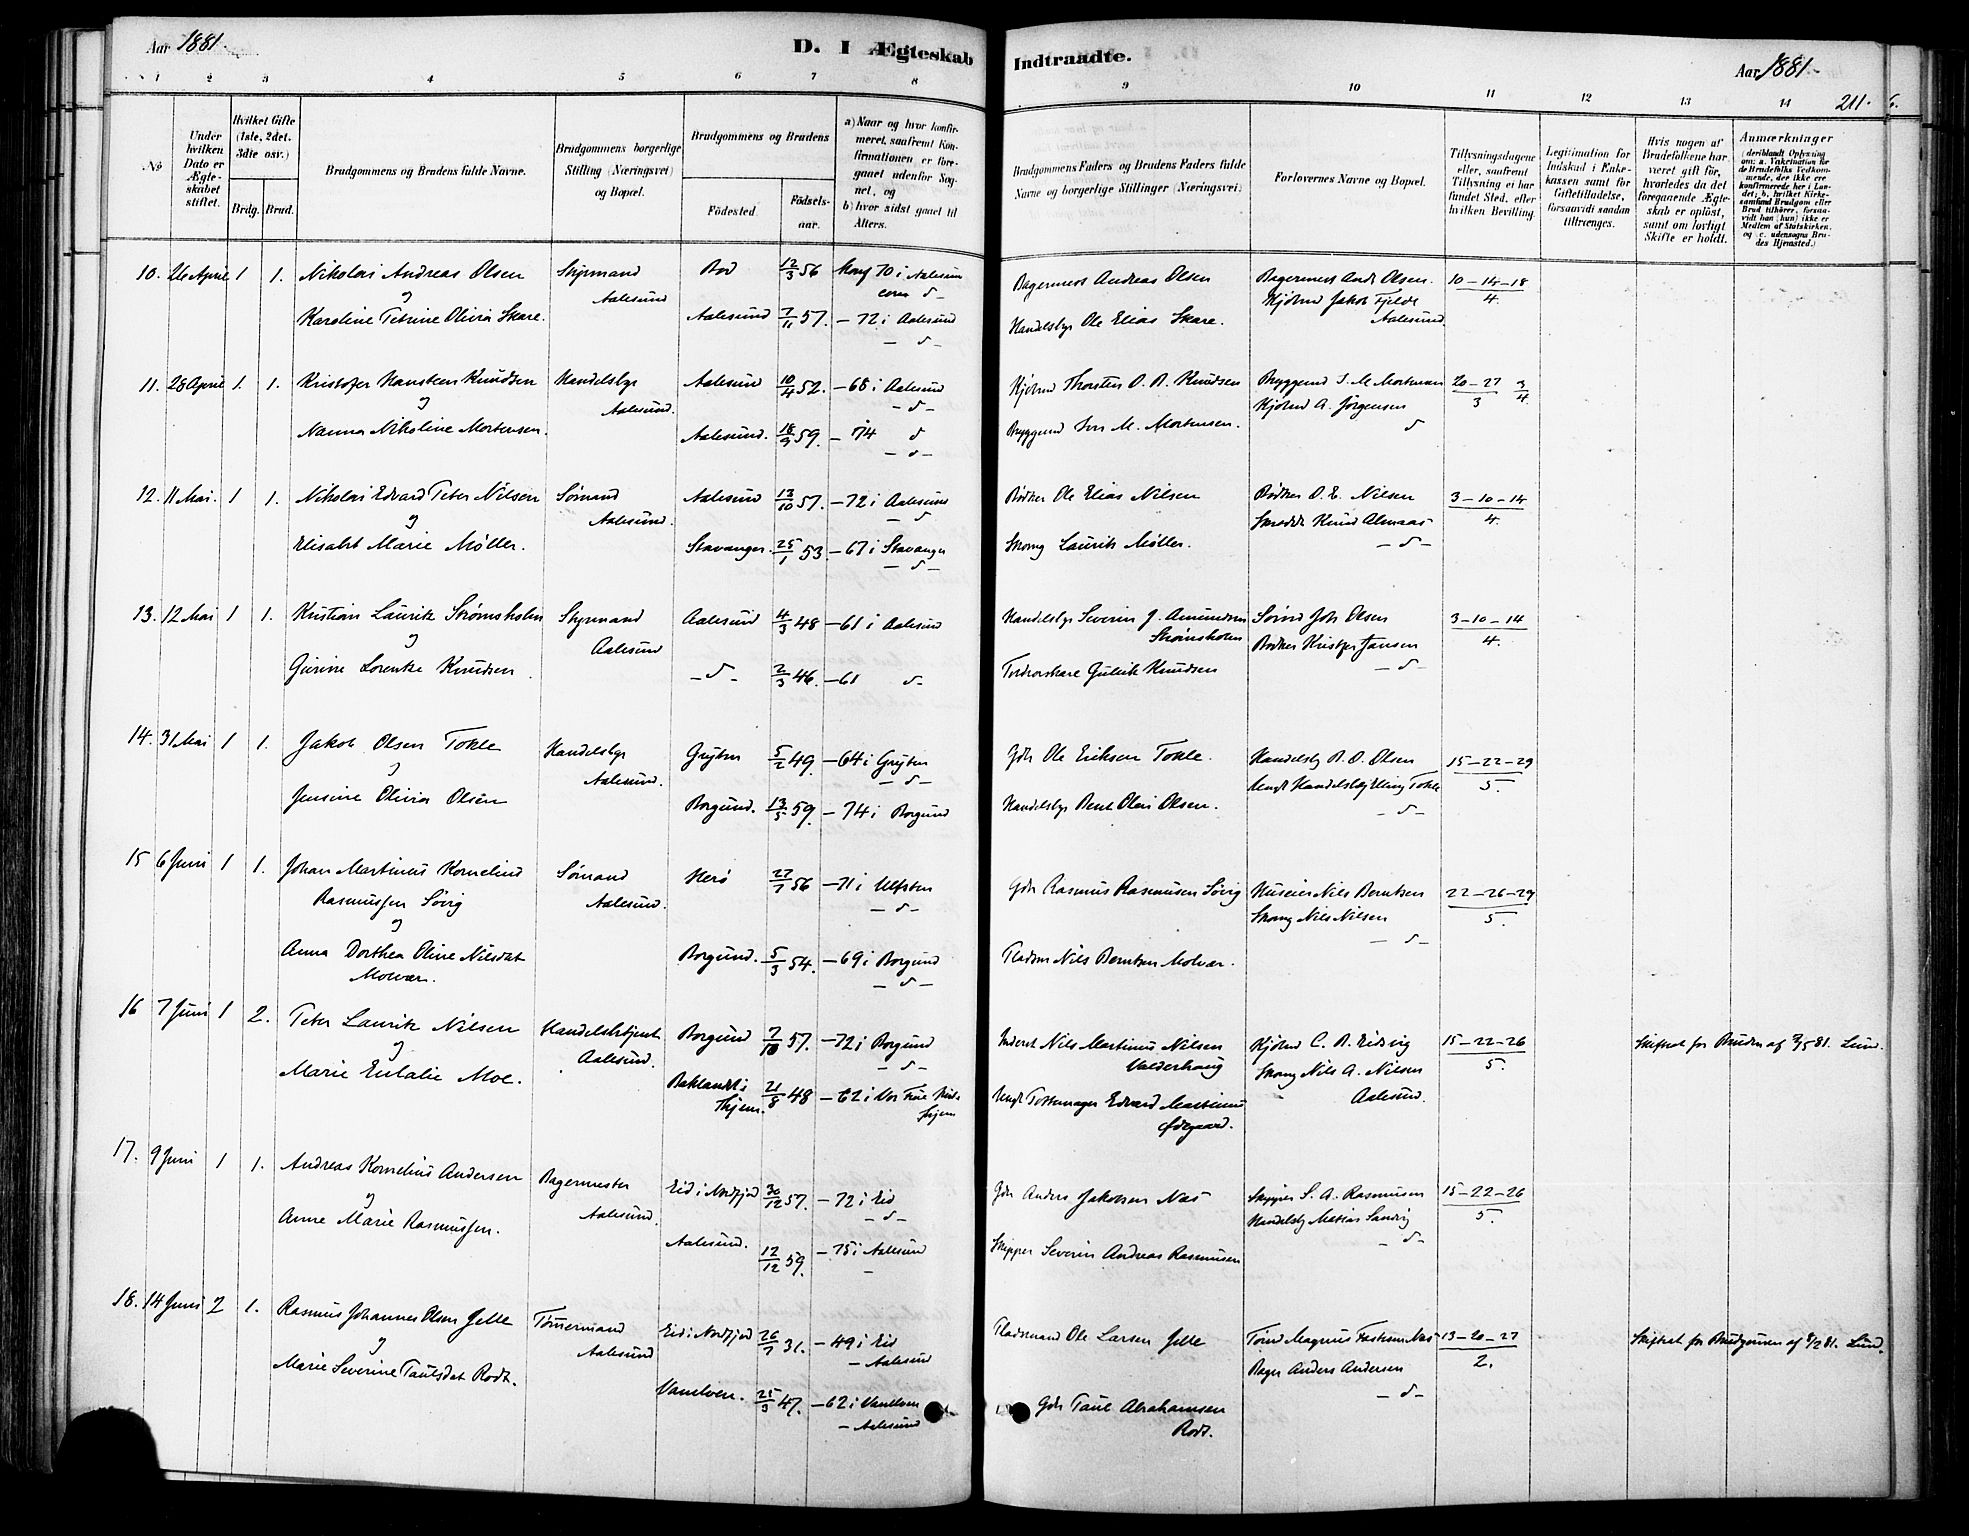 Aar 1881.
D. I Ægteskab
Indtraadte.
Aar 1881.
1 2 3 4 5 6 7 8
9 10 11 12 13 14 211.
No
Under hvilken Dato er Ægteskabet stiftet.
Hvilket Gifte (1ste, 2det, 3die osv.)
Brdg. Brud.
Brudgommens og Brudens fulde Navne.
Brudgommens borgerlige Stilling (Næringsvei) og Bopæl.
Brudgommens og Brudens
Fødested.
Fødselsaar.
a) Naar og hvor konfirmeret, saafremt Konfirmationen er foregaaet udenfor Sognet, og
b) hvor sidst gaaet til Alters.
Brudgommens Faders og Brudens Faders fulde Navne og borgerlige Stillinger (Næringsvei)
Forlovernes Navne og Bopæl.
Tillysningsdagene eller, saafremt Tillysning ei har fundet Sted, efter hvilken Bevilling.
Legitimation for Indskud i Enkekassen samt for Giftetilladelse, forsaavidt saadan tiltrænges.
Hvis nogen af Brudefolkene har været gift før, hvorledes da det foregaaende Ægteskab er opløst, samt om lovligt Skifte er holdt.
Anmærkninger (deriblandt Oplysning om: a. Vakcination for de Brudefolks Vedkommende, der ikke ere konfirmerede her i Landet; b. hvilket Kirkesamfund Brudgom eller Brud tilhører, forsaavidt han (hun) ikke er Medlem af Statskirken, og c. udensogns Brudes Hjemsted.)
10. 26 April 1 1. Nikolai Andreas Olsen Styrmand Aalesund Bod 12/3 56 Konf 70 i Aalesund Bagermest Andreas Olsen Bagermest Andr Olsen. 10-14-18/4.
og
Karoline Petrine Olivia Skare. Aalesund 7/11 57. -72 i Aalesund Handelsbgr Ole Elias Skare. Kjøbmd Jakob Fjelde Aalesund
11. 28 April 1. 1. Kristofer Hansteen Knudsen Handelsbgr Aalesund. Aalesund 10/4 52. -68 i Aalesund Kjøbmd Thorsten O. B. Knudsen Bryggemd I. M. Mortensen 20-27/3 3/4.
og
Nanna Nikoline Mortensen. Aalesund. 18/3 59. -74 d Bryggemd Iver M. Mortensen. Kjøbmd A. Jørgensen d
12. 11 Mai. 1 1. Nikolai Edvard Peter Nilsen Sømand Aalesund. Aalesund 13/10 57. -72 i Aalesund Bødker Ole Elias Nilsen Bødker O. E. Nilsen 3-10-14/4.
og
Elisabt Marie Møller. Stavanger. 25/1 53 -67 i Stavanger Skomg Laurits Møller. Skredd Knud Almaas -d-
13. 12 Mai 1 1. Kristian Lauritz Strømsholm Styrmand Aalesund Aalesund 4/3 48 -61 i Aalesund Handelsbgr Severin J. Amundsen Strømsholm Sømd Joh Olsen 3-10-14/4.
og
Gurine Lorentze Knudsen -d- 2/3 46. -61 d- Gulik Knudsen Bødker Kristofer Jansen -d-
14. 31 Mai 1 1. Jakob Olsen Tokle Handelsbgr Aalesund. Gryten 5/2 49. -64 i Gryten -d- Gbr Ole Eriksen Tokle. Handelsbg B. O. Olsen 15-22-29/5.
og
Jensine Olivia Olsen Borgund. 13/5 59. -74 i Borgund Handelsbgr Bent Olai Olsen. Ungk Handelsbg Elling Tokle -d-
15 6 Juni 1 1. Johan Martinus Kornelius Rasmussen Søvig Sømand Aalesund. Herø 27/7 56 -71 i Ulfsten -d- Gbr Rasmus Rasmussen Søvig Huseier Nils Berntsen 22-26-29/5.
og
Anna Dorthea Oline Nilsdat Molvær. Borgund. 5/3 54. -69 i Borgund -d- Pladsm Nils Berntsen Molvær. Skomg Nils Nilsen -d-
16 7 Juni 1 2. Peter Lauritz Nilsen Handelsbetjent Aalesund. Borgund 7/10 57. -72 i Borgund -d- Inderst Nils Martinus Nilsen Valderhaug Kjøbmd C. B. Eidsvig 15-22-26/5. Skifteat for Bruden af 7/5 81. Lund.
og
Marie Eulalie Moe. Baklandet i Thjem. 21/8 48 -62 i Vor Frue Kirke Thjem Ungk Pottemager Edvard Martinus Ødegaard. Skomg Nils A. Nilsen Aalesund.
17. 9 Juni 1 1. Andreas Kornelius Andersen Bagermester Aalesund. Eid i Nordfjord 30/12 57. -72 i Eid -d- Gbr Anders Jakobsen Nas Skipper S. A. Rasmussen 15-22-26/5.
og
Anne Marie Rasmussen. Aalesund. 12/12 59. -75 i Aalesund Skipper Severin Andreas Rasmussen Handelsbg Matias Sandvig -d-
18. 14 Juni 2 1. Rasmus Johannes Olsen Jelle Tømmermand Aalesund Eid i Nordfjord 26/7 31. -49 i Eid -Aalesund Pladsmand Ole Larsen Jelle Tømd Magnus Nas 13-20-27/2. Skifteat for Brudgommen af 8/2 81. Lund.
og
Marie Severine Paulsdat Rodt. Vanelven. 25/3 47. -62 i Vanelven -Aalesund Gbr Paul Abrahamsen Rodt. Bager Anders Andersen -d-